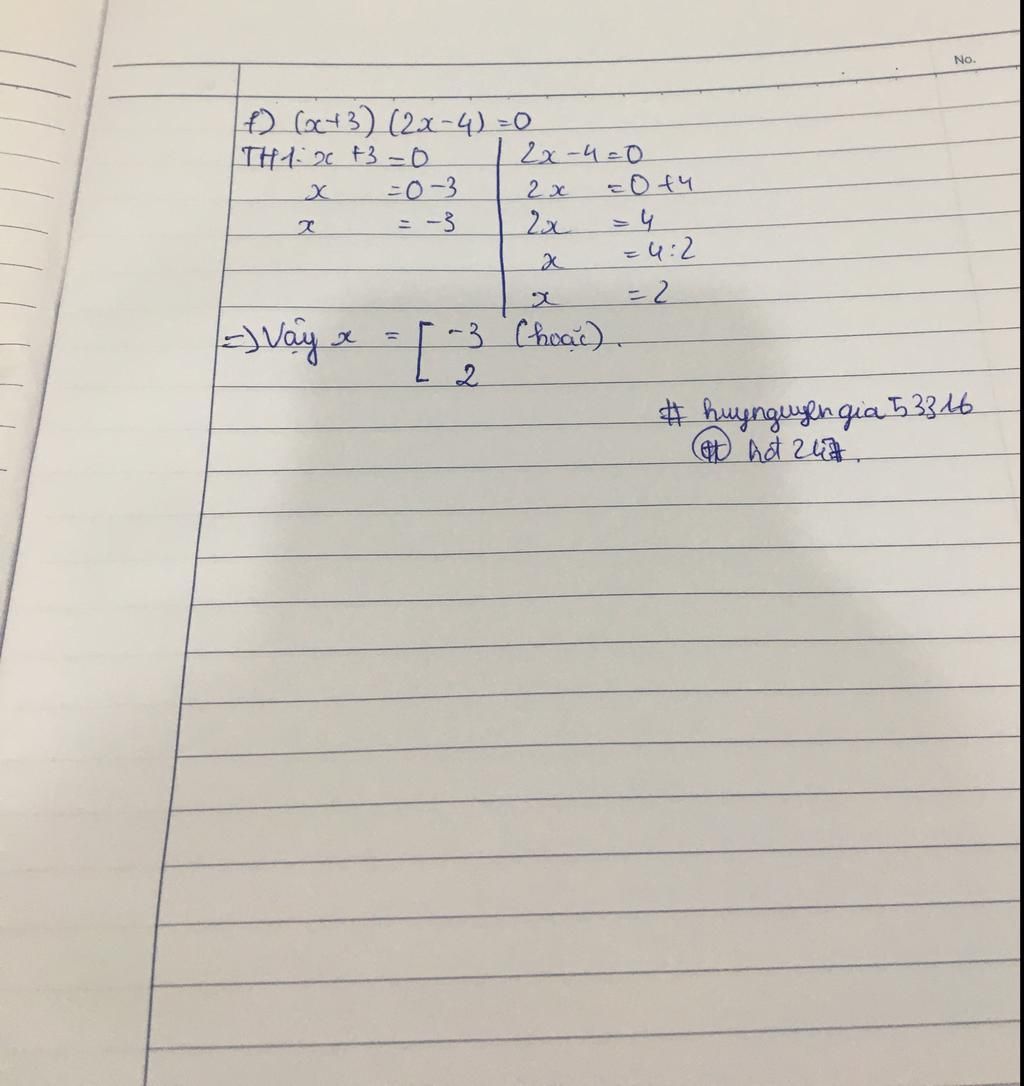 No.
f) (x+3) (2x-4) =0
TH1: x +3 =0 | 2x -4 =0
x =0 -3 | 2x =0 +4
x = -3 | 2x = 4
x = 4:2
x = 2
=> Vậy x = [ -3 (hoặc).
2
# huynguyengia53316
# hot 247.